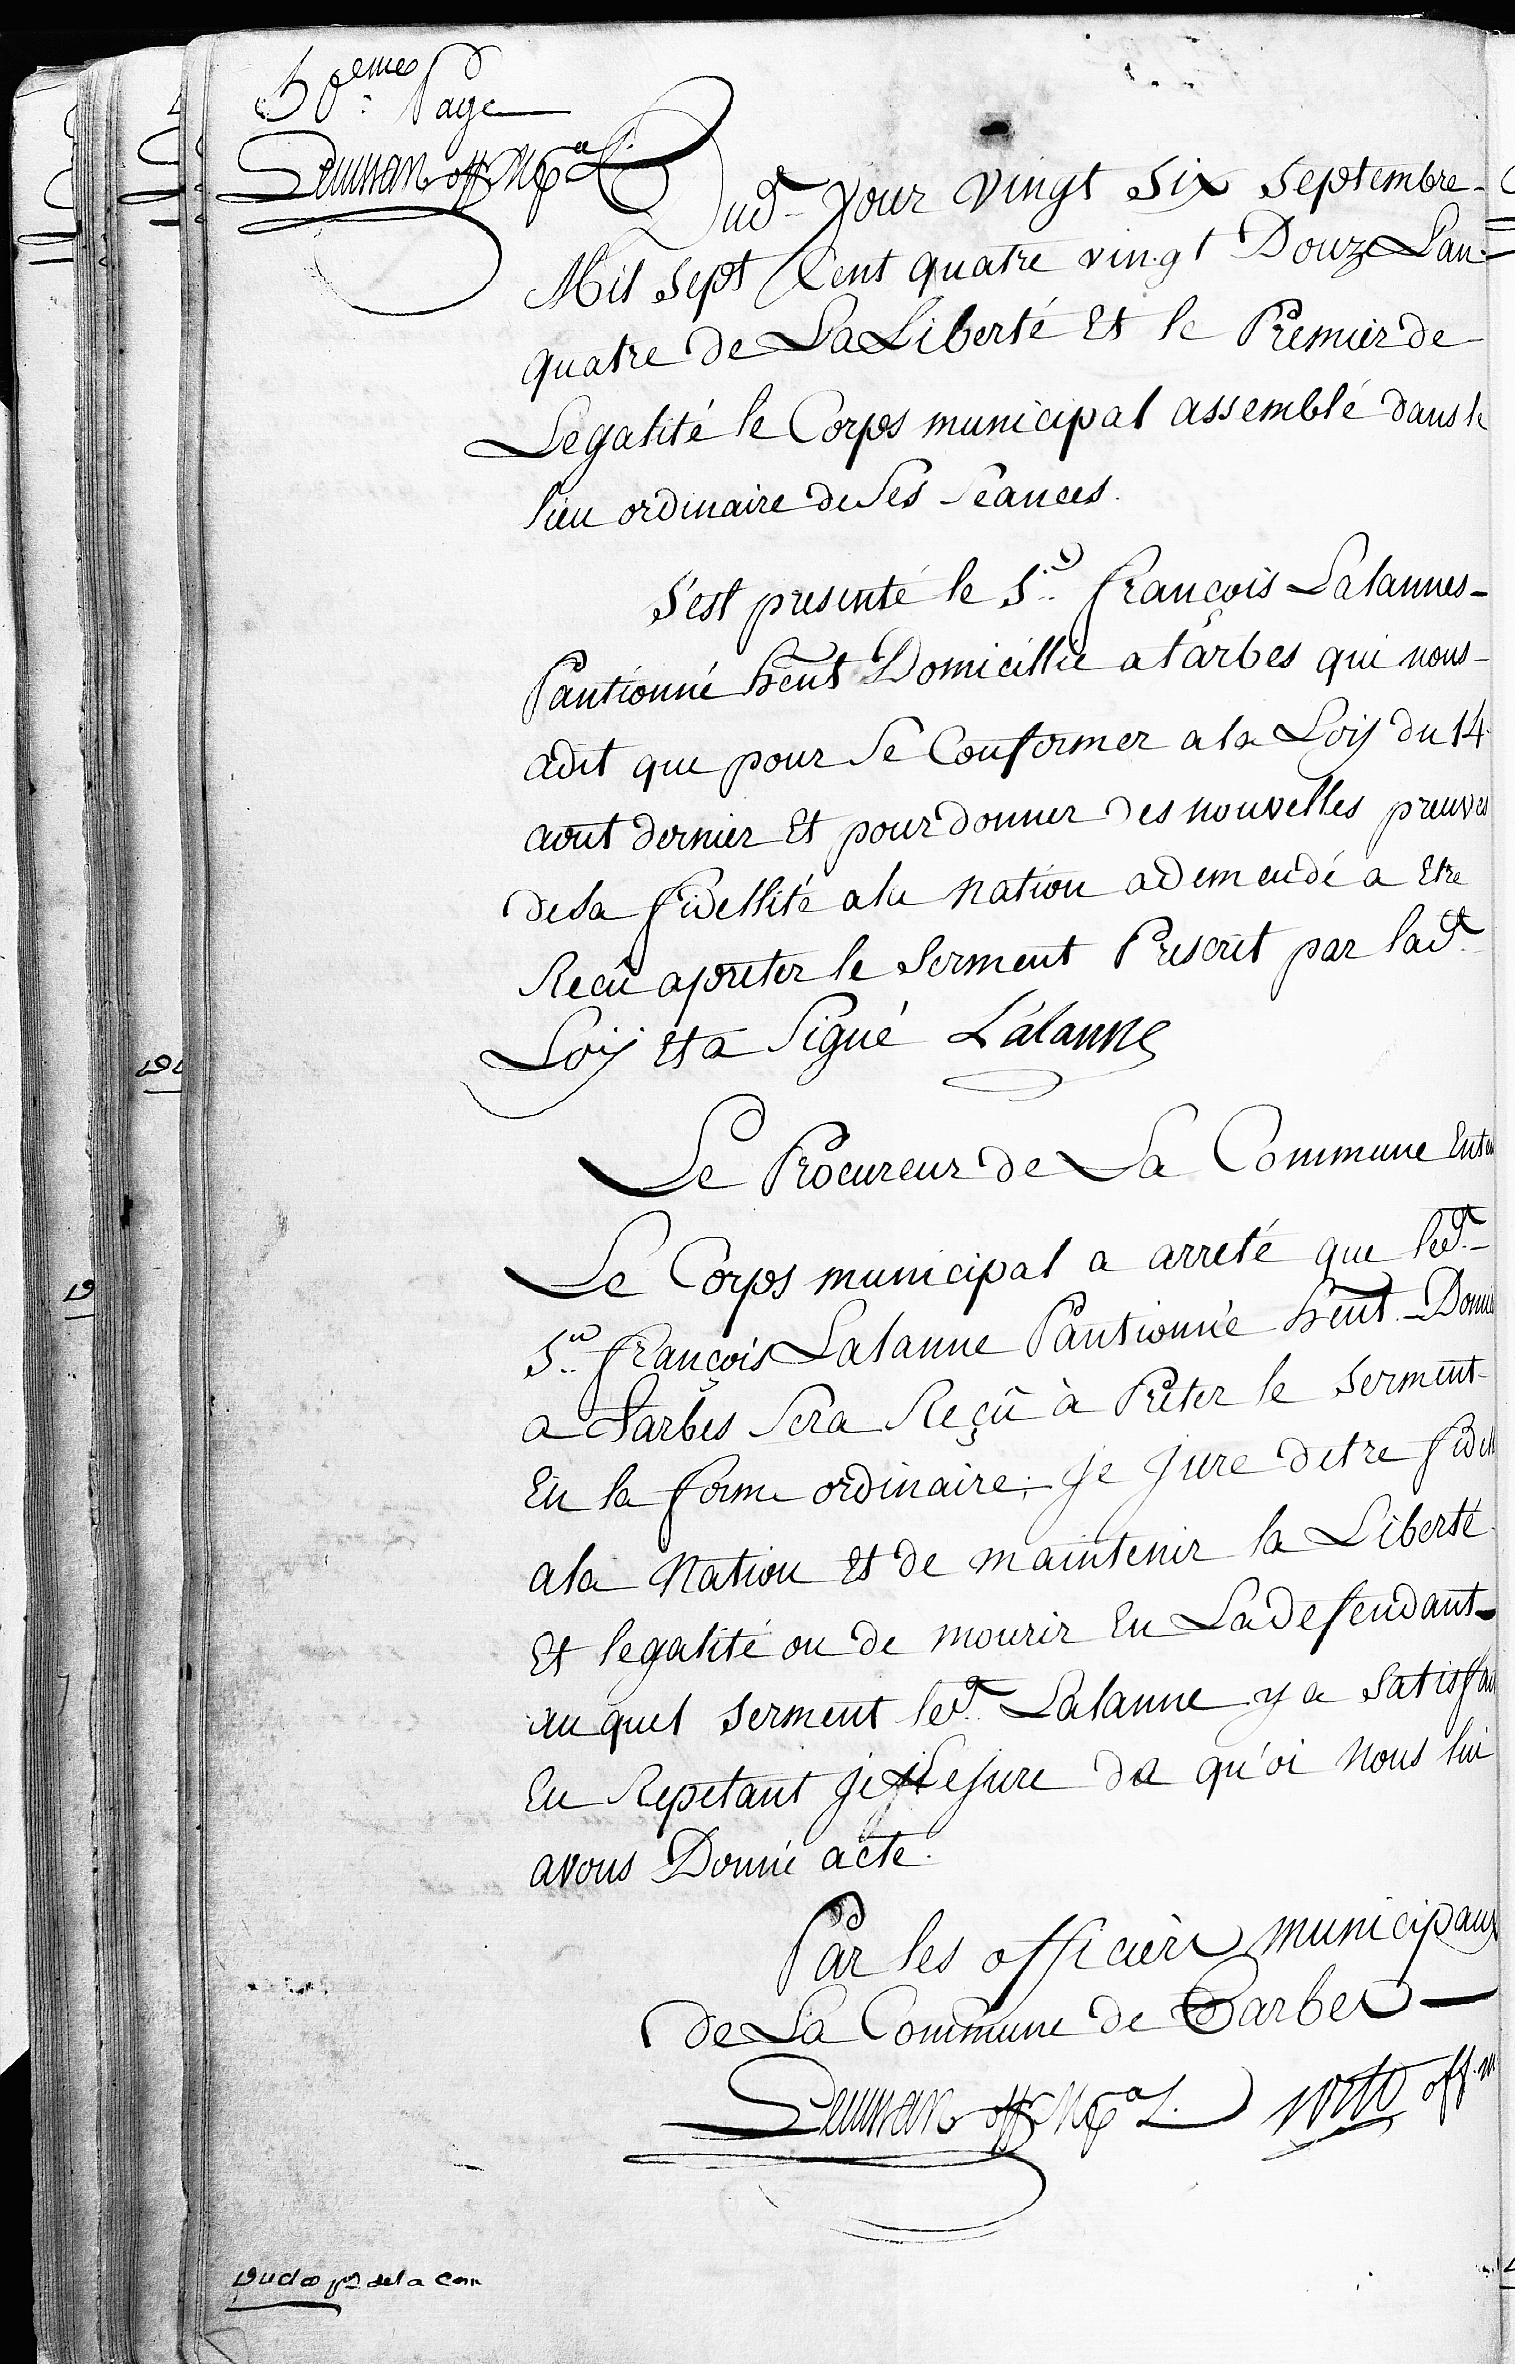 50.emes Page
off. Mpal.
Dud. Jour vingt Six Septembre
Mil Sept Cent quatre vingt Douze Lan
quatre de La Liberté Et le Premier de
Legalité le Corps municipal assemblé dans le
lieu ordinaire de Ses Séances.
S'est presenté le Sr. françois Lalannes
Pantionné Domicillié a tarbes qui nous
adit que pour Se Conformer a la Loy du 14
aout dernier Et pour donner des nouvelles preuves
de sa fidellité a la nation a demendé a Etre
Recû a preter le Serment Prescrit par lad.
Loy Et a Signé Lalanne
Le Procureur de La Commune
Le Corps municipal a arreté que led.
Sr. françois Lalanne Pantionné
a Tarbes Sera Reçû à Prêter le Serment
En la forme ordinaire; je jure detre
a la Nation Et de maintenir la Liberté
Et legalité ou de mourir En La defendant
au quel Serment led. Lalanne y a
En Repetant je le jure da qu'oi Nous lui
avons Donné acte.
Par les officiers municipaux
de La Commune de Tarbes
off. Mpal. off. m
de la Com